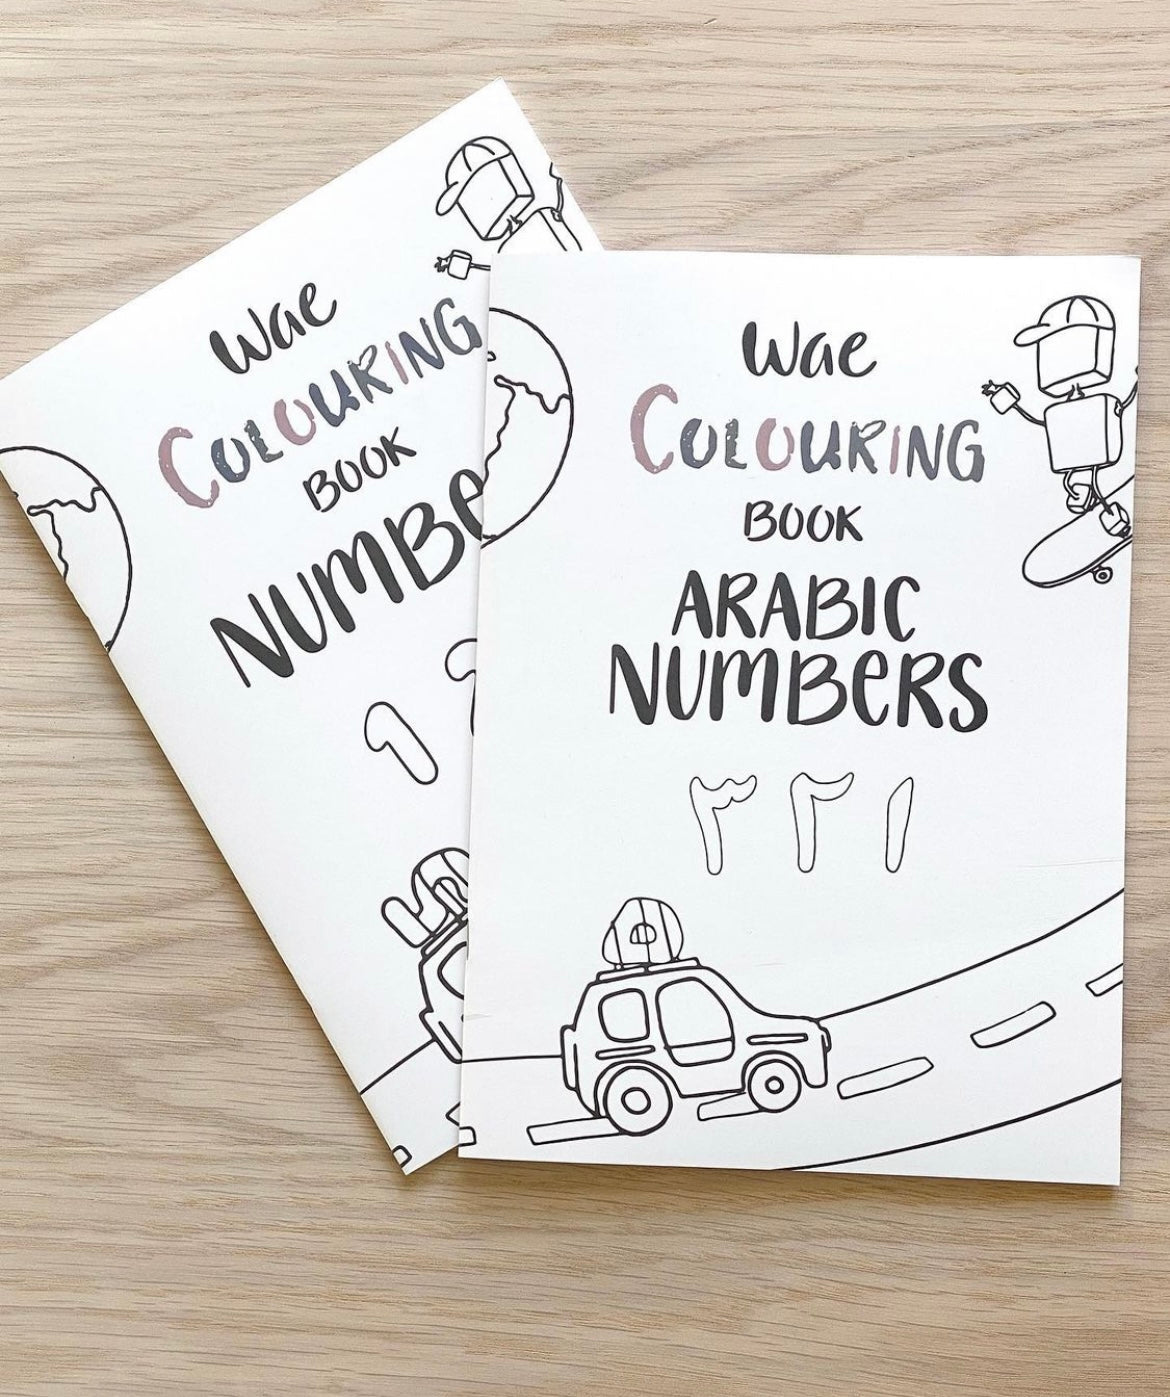 Wae
COLOURING
BOOK
NUMBE
1
Wae
COLOURING
BOOK
ARABIC
NUMBERS
١ ٢ ٣